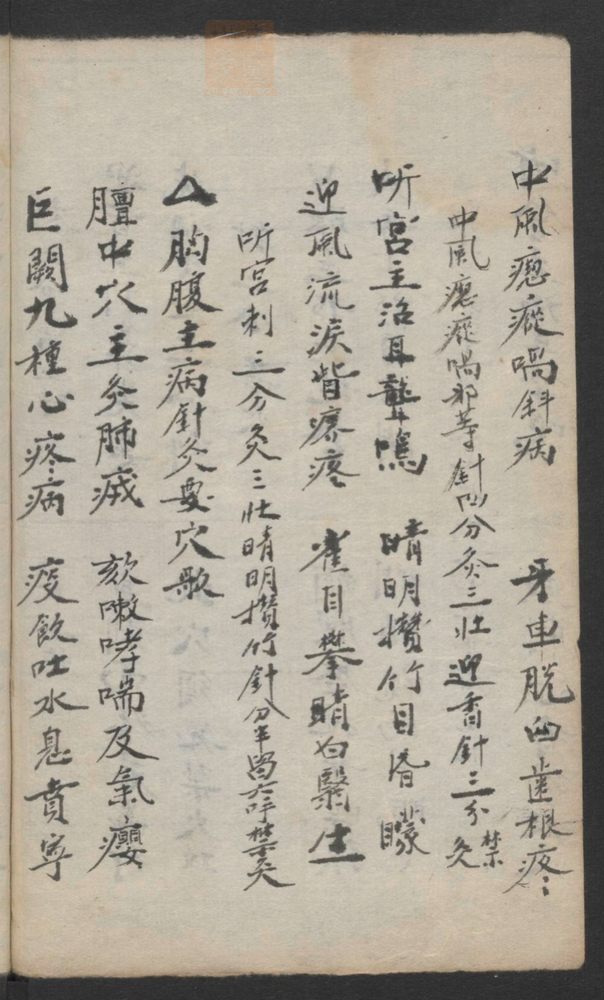 中風瘛瘲喎斜病　牙車脫臼齒根疼
中風瘛瘲喎邪等針四分灸三壯迎香針三分禁灸
听宮主治耳聾鳴　睛明攢竹目昏矇
迎風流淚眥癢疼　雀目攀睛白翳生
听宮刺三分灸三壯睛明攢竹針分半留六呼禁灸
△胸腹主病針灸要穴歌
膻中穴主灸肺
欬嗽哮喘及氣癭
巨闕九種心疼病　痰飲吐水息賁寧